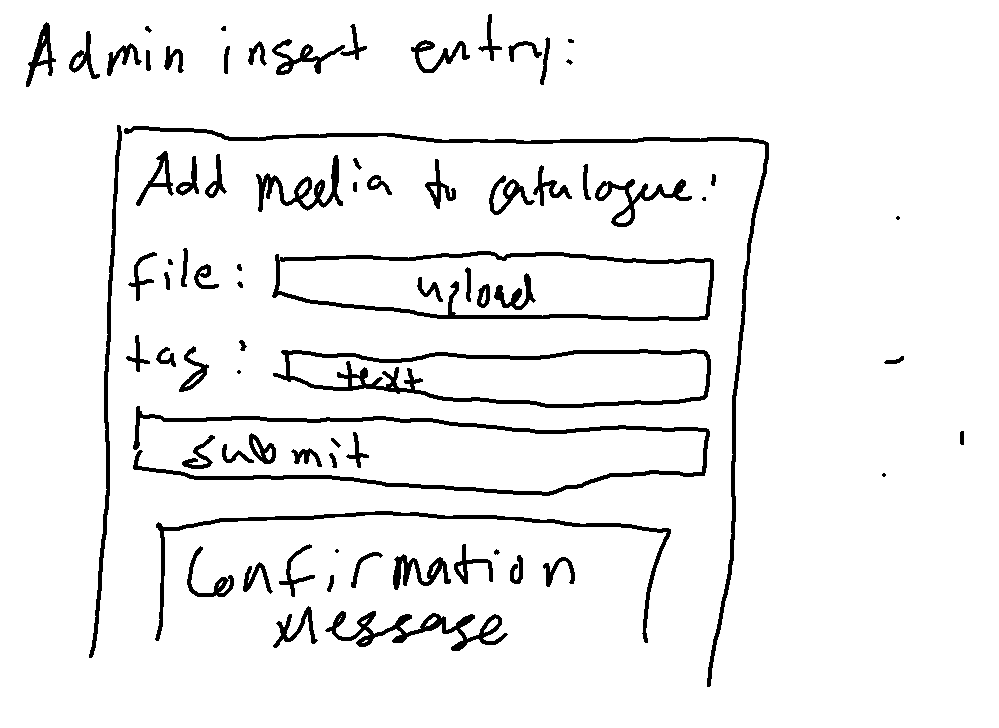 Admin insert entry:
Add media to catalogue:
file: upload
tag: text
submit
Confirmation
Message